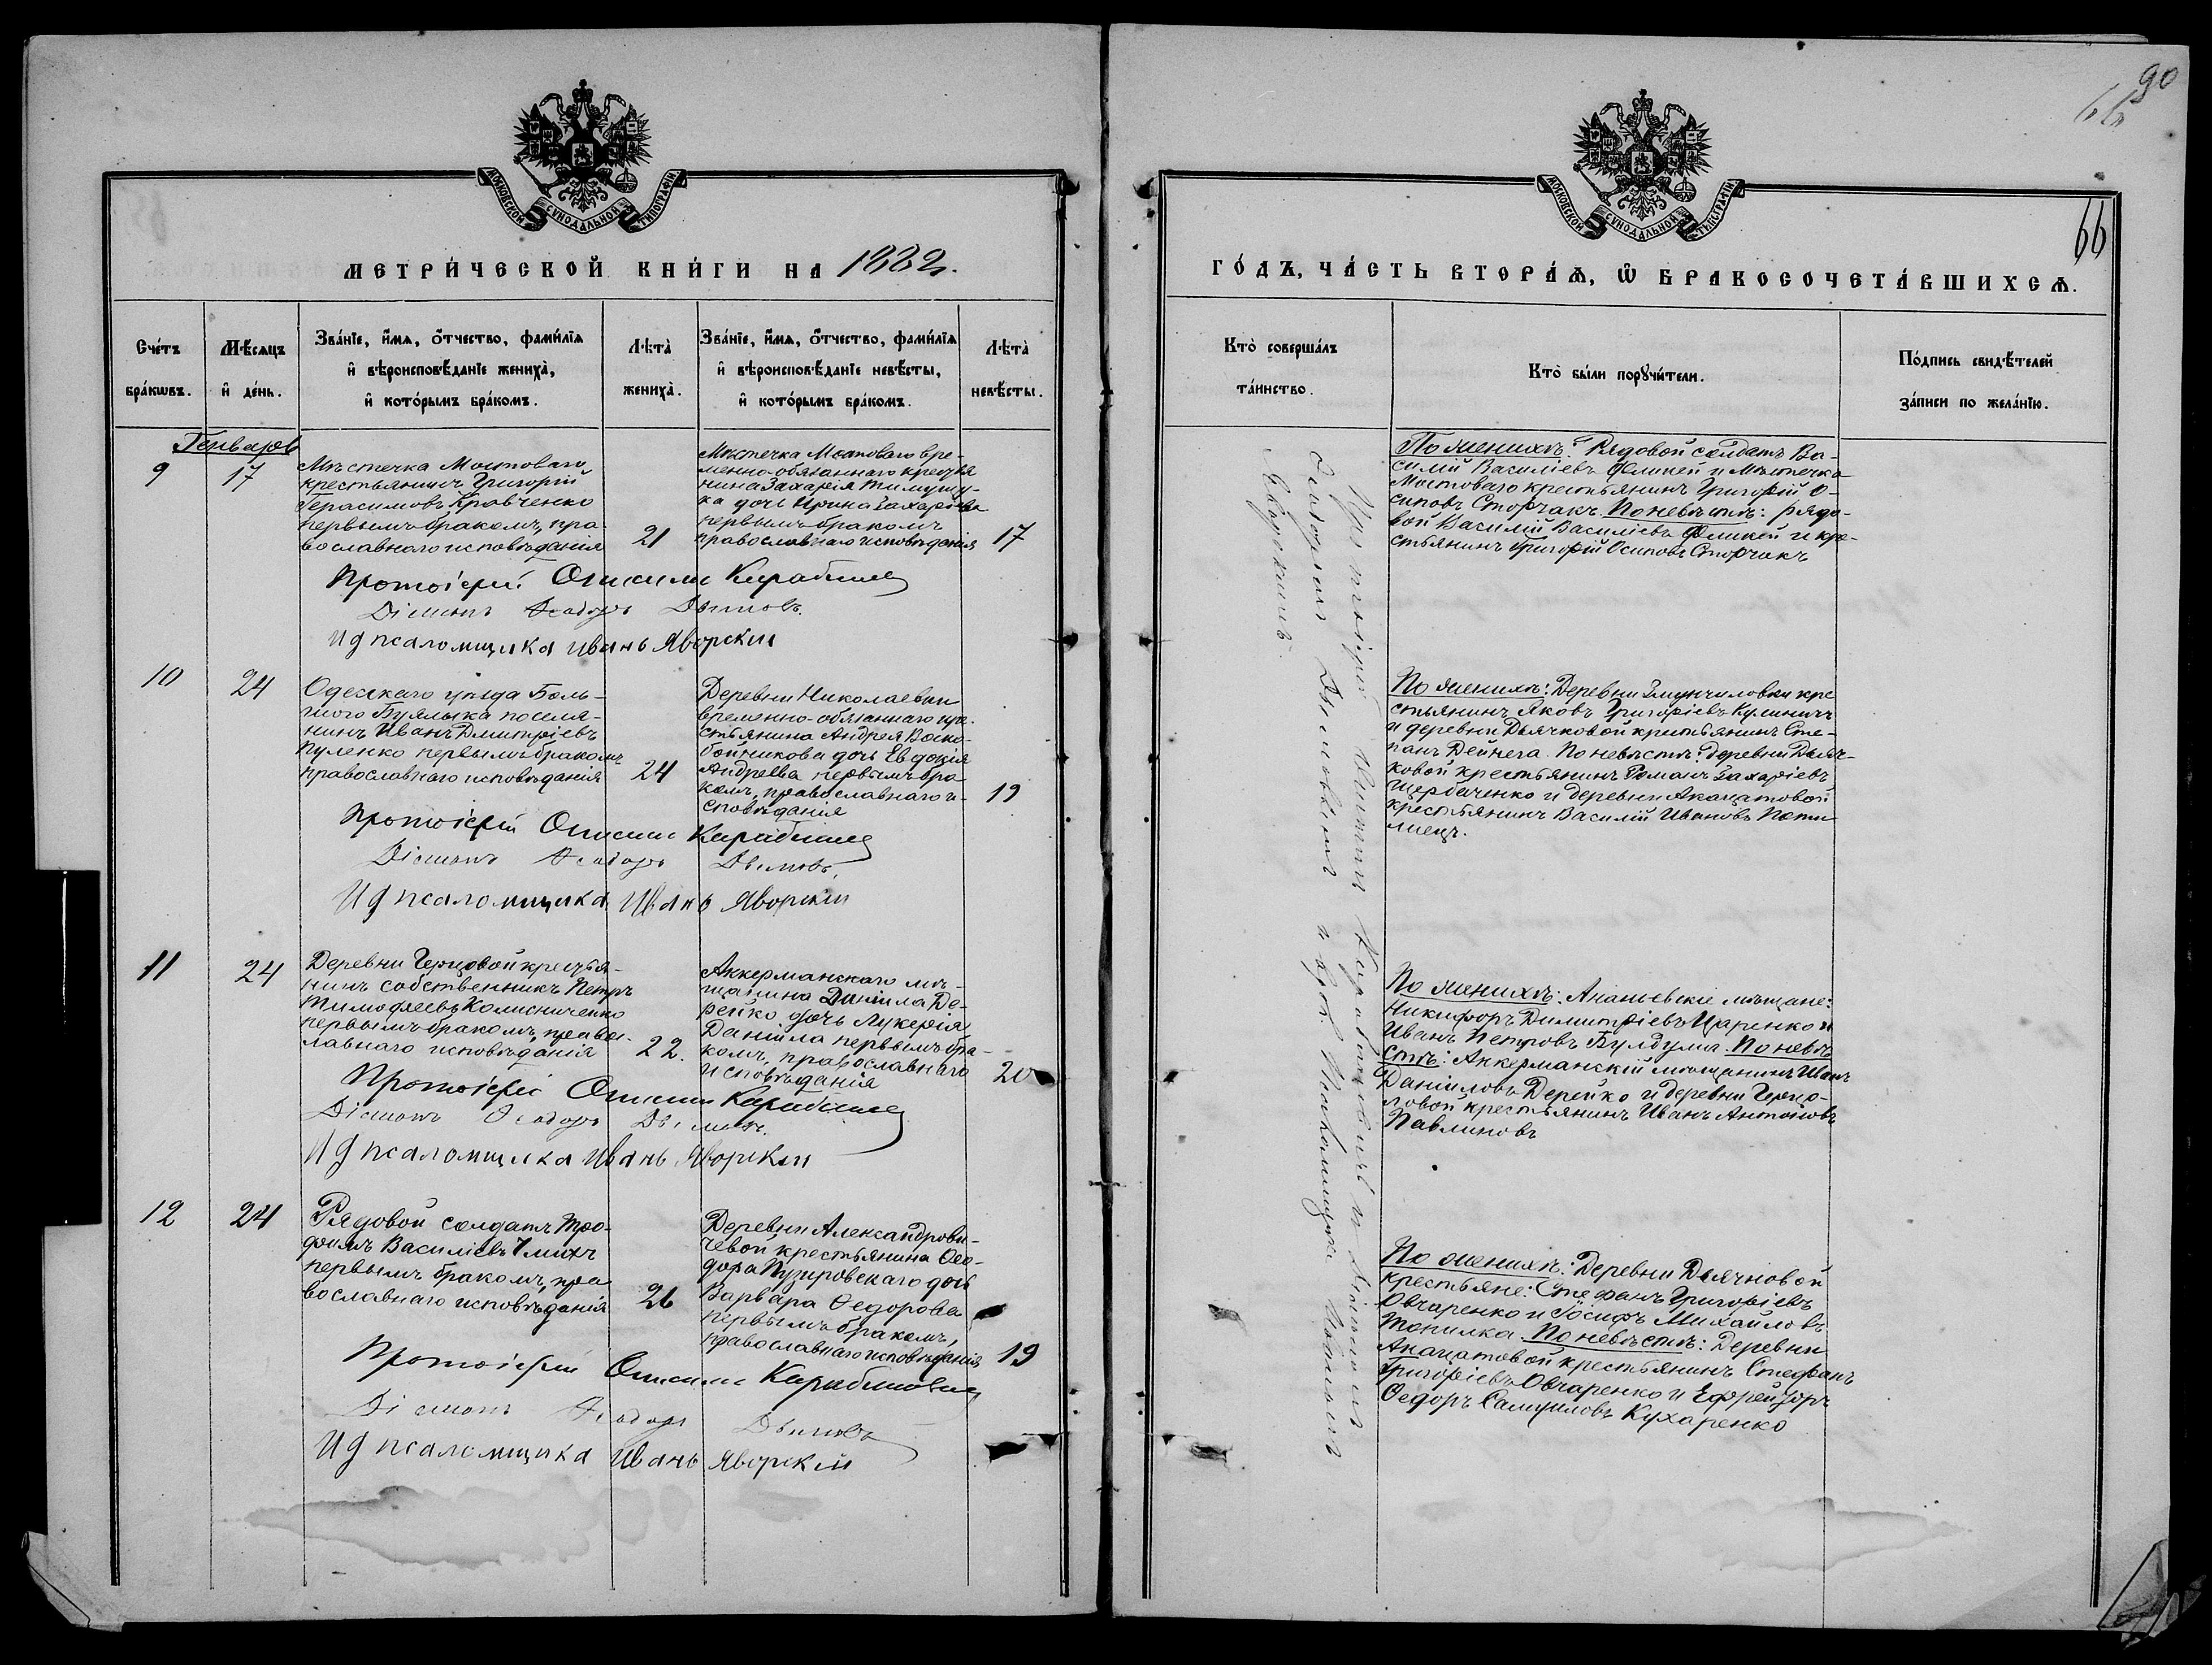 90
66
66
МОСКОВСКОЙ СѴНОДАЛЬНОЙ ТИПОГРАФІИ
МЕТРИ́ЧЕСКОЙ КНИ́ГИ НА 1882 г.
Сче́тъ бра́кѡвъ.
Мѣ́сяцъ и҆ де́нь.
Зва́нїе, и҆́мя, ѻ҆́тчество, фами́лїя
и҆ вѣроисповѣ́данїе жениха̀,
и҆ кото́рымъ бра́комъ.
Лѣ́та̀ жениха̀.
Зва́нїе, и҆́мя, ѻ҆́тчество, фами́лїя
и҆ вѣроисповѣ́данїе невѣ́сты,
и҆ кото́рымъ бра́комъ.
Лѣ́та̀ невѣ́сты.
Генваря
9
17
Мѣстечка Мостоваго
крестьянинъ Григорій
Герасимовъ Кравченко
первымъ бракомъ, пра-
вославнаго исповѣданія
21
Мѣстечка Мостоваго вре-
менно-обязаннаго крестья
нина Захарія
ка дочь Ирина Захаріева
первымъ бракомъ
православнаго исповѣданія
17
Протоіерей
Діаконъ Ѳеодоръ
И д псаломщика Иванъ Яворскій
10
24
Одесскаго уѣзда Боль-
шого Буялыка поселя-
нинъ Иванъ Дмитріевъ
Пуленко первымъ бракомъ
православнаго исповѣданія
24
Деревни Николаевки
временно-обязаннаго кре-
стьянина Андрея Воско-
бойникова дочь Евдокія
Андреева первымъ бра-
комъ, православнаго и-
сповѣданія
19
Протоіерей
Діаконъ Ѳеодоръ
И д псаломщика Иванъ Яворскій
11
24
Деревни крестья-
нинъ собственникъ Петръ
Тимофеевъ Колисниченко
первымъ бракомъ, правос-
лавнаго исповѣданія
22.
Аккерманскаго мѣ-
щанина Даніила Де-
рейко дочь Лукерія
Даніила первымъ бра-
комъ, православнаго
исповѣданія
20
Протоіерей
Діаконъ Ѳеодоръ
И д псаломщика Иванъ Яворскій
12
24
Рядовой солдатъ Тро-
фимъ Василіевъ
первымъ бракомъ, пра
вославнаго исповѣданія
26
Деревни Александрови-
чевой крестьянина Ѳео-
дора Пузыровскаго дочь
Варвара Ѳедорова
первымъ бракомъ,
православнаго исповѣданія
19
Протоіерей
Діаконъ Ѳеодоръ
И д псаломщика Иванъ Яворскій
МОСКОВСКОЙ СѴНОДАЛЬНОЙ ТИПОГРАФІИ
ГО́ДЪ, ЧА́СТЬ ВТОРА́Ѧ, Ѽ БРАКОСОЧЕТА́ВШИХСѦ.
Кто̀ соверша́лъ та́инство.
Кто̀ бы́ли порꙋчи́тели.
По́дпись свидѣ́телей
за́писи по жела́нїю.
По женихѣ: Рядовой солдатъ Ва-
силій Василіевъ и Мѣстечка
Мостоваго крестьянинъ Григорій О-
сиповъ Сторчакъ. По невѣстѣ: рядо-
вой Василій Василіевъ и кре-
стьянинъ Григорій Осиповъ Сторчакъ
По женихѣ: Деревни кре
стьянинъ Яковъ Григоріевъ Кулиничъ
и деревни Дьячковой крестьянинъ Сте-
панъ Дейнега. По невѣстѣ: Деревни Дьяч-
ковой крестьянинъ Романъ Захаріевъ
Щербаченко и деревни Акацатовой
крестьянинъ Василій Ивановъ
По женихѣ: Ананьевскіе мѣщане:
Никифоръ Димитріевъ Царенко и
Иванъ Петровъ Булдума. По невѣ
стѣ: Аккерманскій мѣщанинъ Иванъ
Даніиловъ Дерейко и деревни
крестьянинъ Иванъ Антоновъ
Павлиновъ
По женихѣ: Деревни Дьячковой
крестьяне: Стефанъ Григоріевъ
Овчаренко и Іосифъ Михайловъ
Топилка. По невѣстѣ: Деревни
Акацатовой крестьянинъ Стефанъ
Григоріевъ Овчаренко и Ефрейторъ
Ѳедоръ Самуиловъ Кухаренко